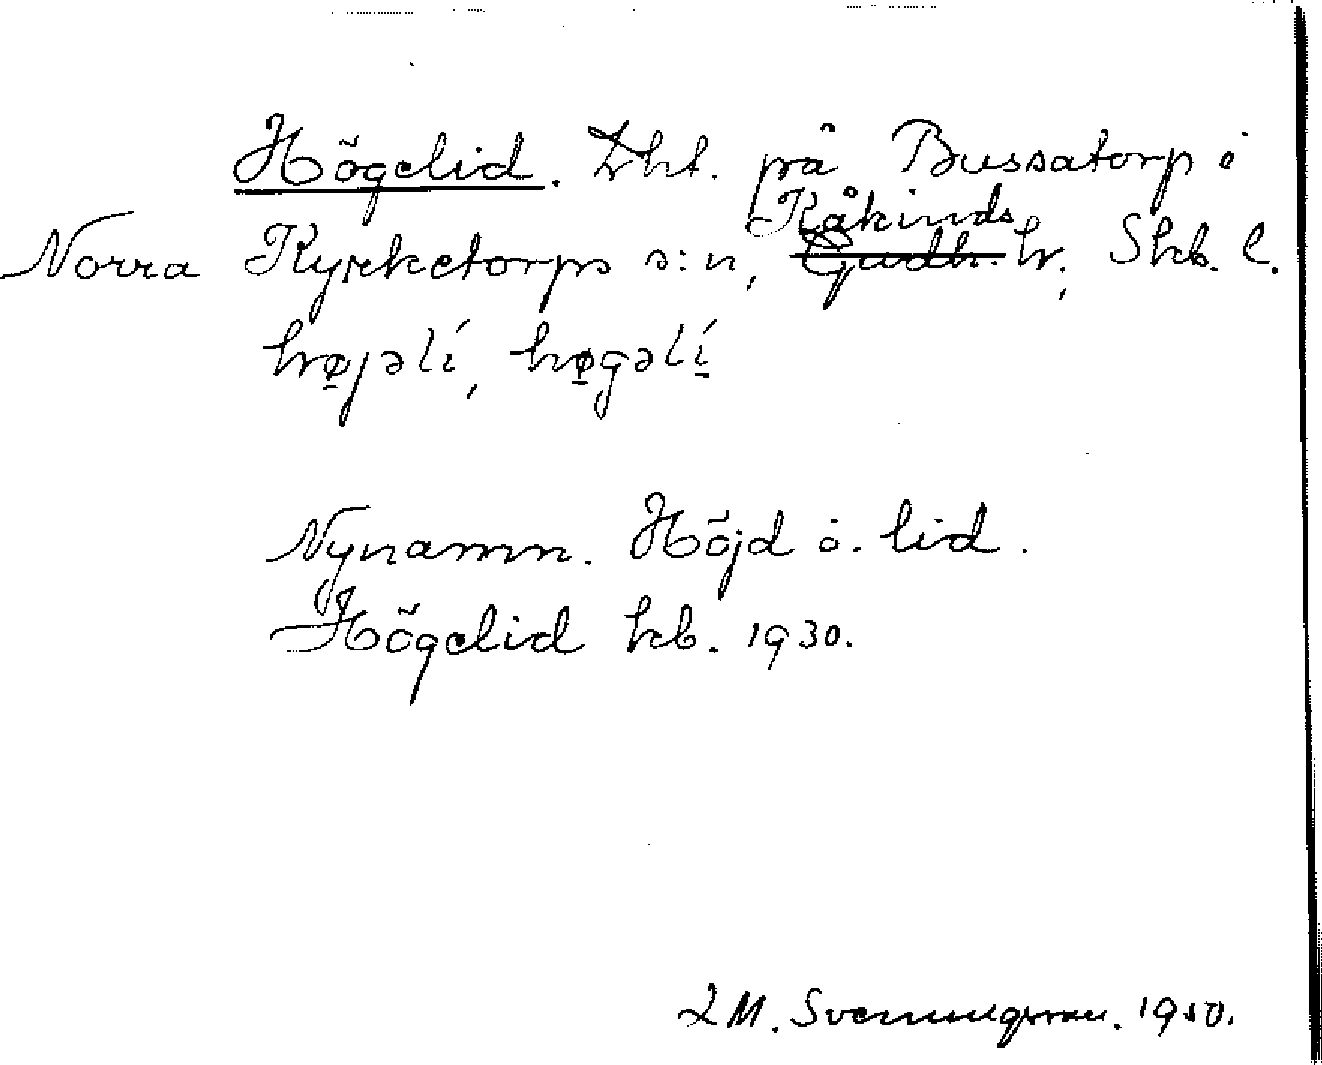 Högelid. Lht. på Bussatorp i
Norra Kyrketorps s:n, Kåkinds hr, Skb. l.
højəlí, høgəlí
Nynamn. Höjd o. lid.
Högelid kb. 1930.
Svenningsson. 1950.